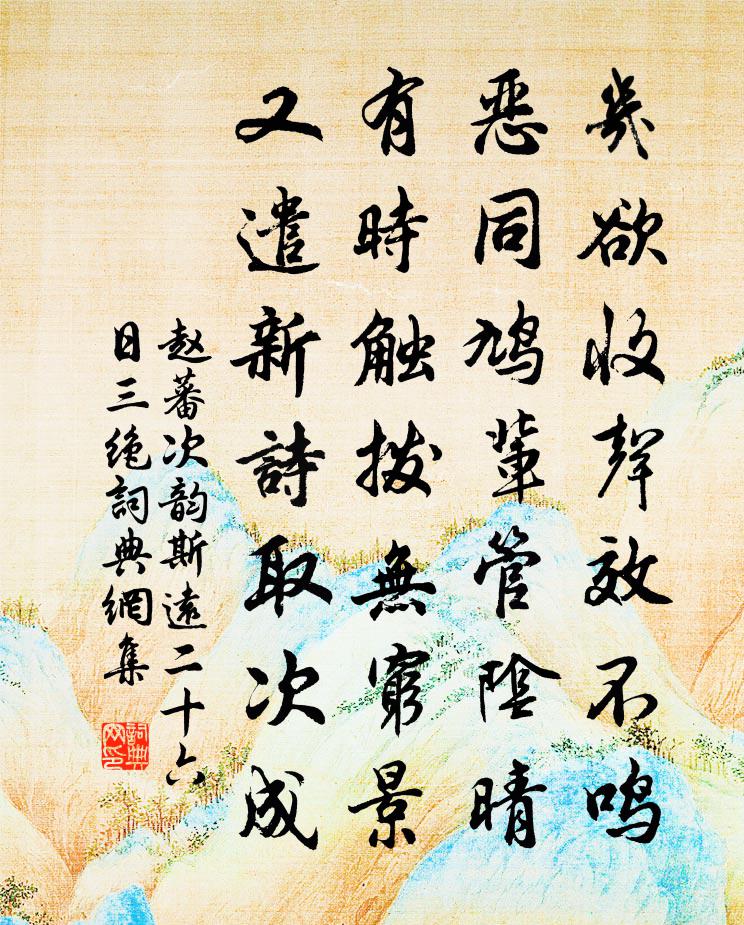 幾欲收聲效不鳴
惡同鸠輩管陰晴
有時触拨無窮景
又遣新詩取次成
赵蕃次韵斯遠二十六
日三絶詞典網集
詞典网印